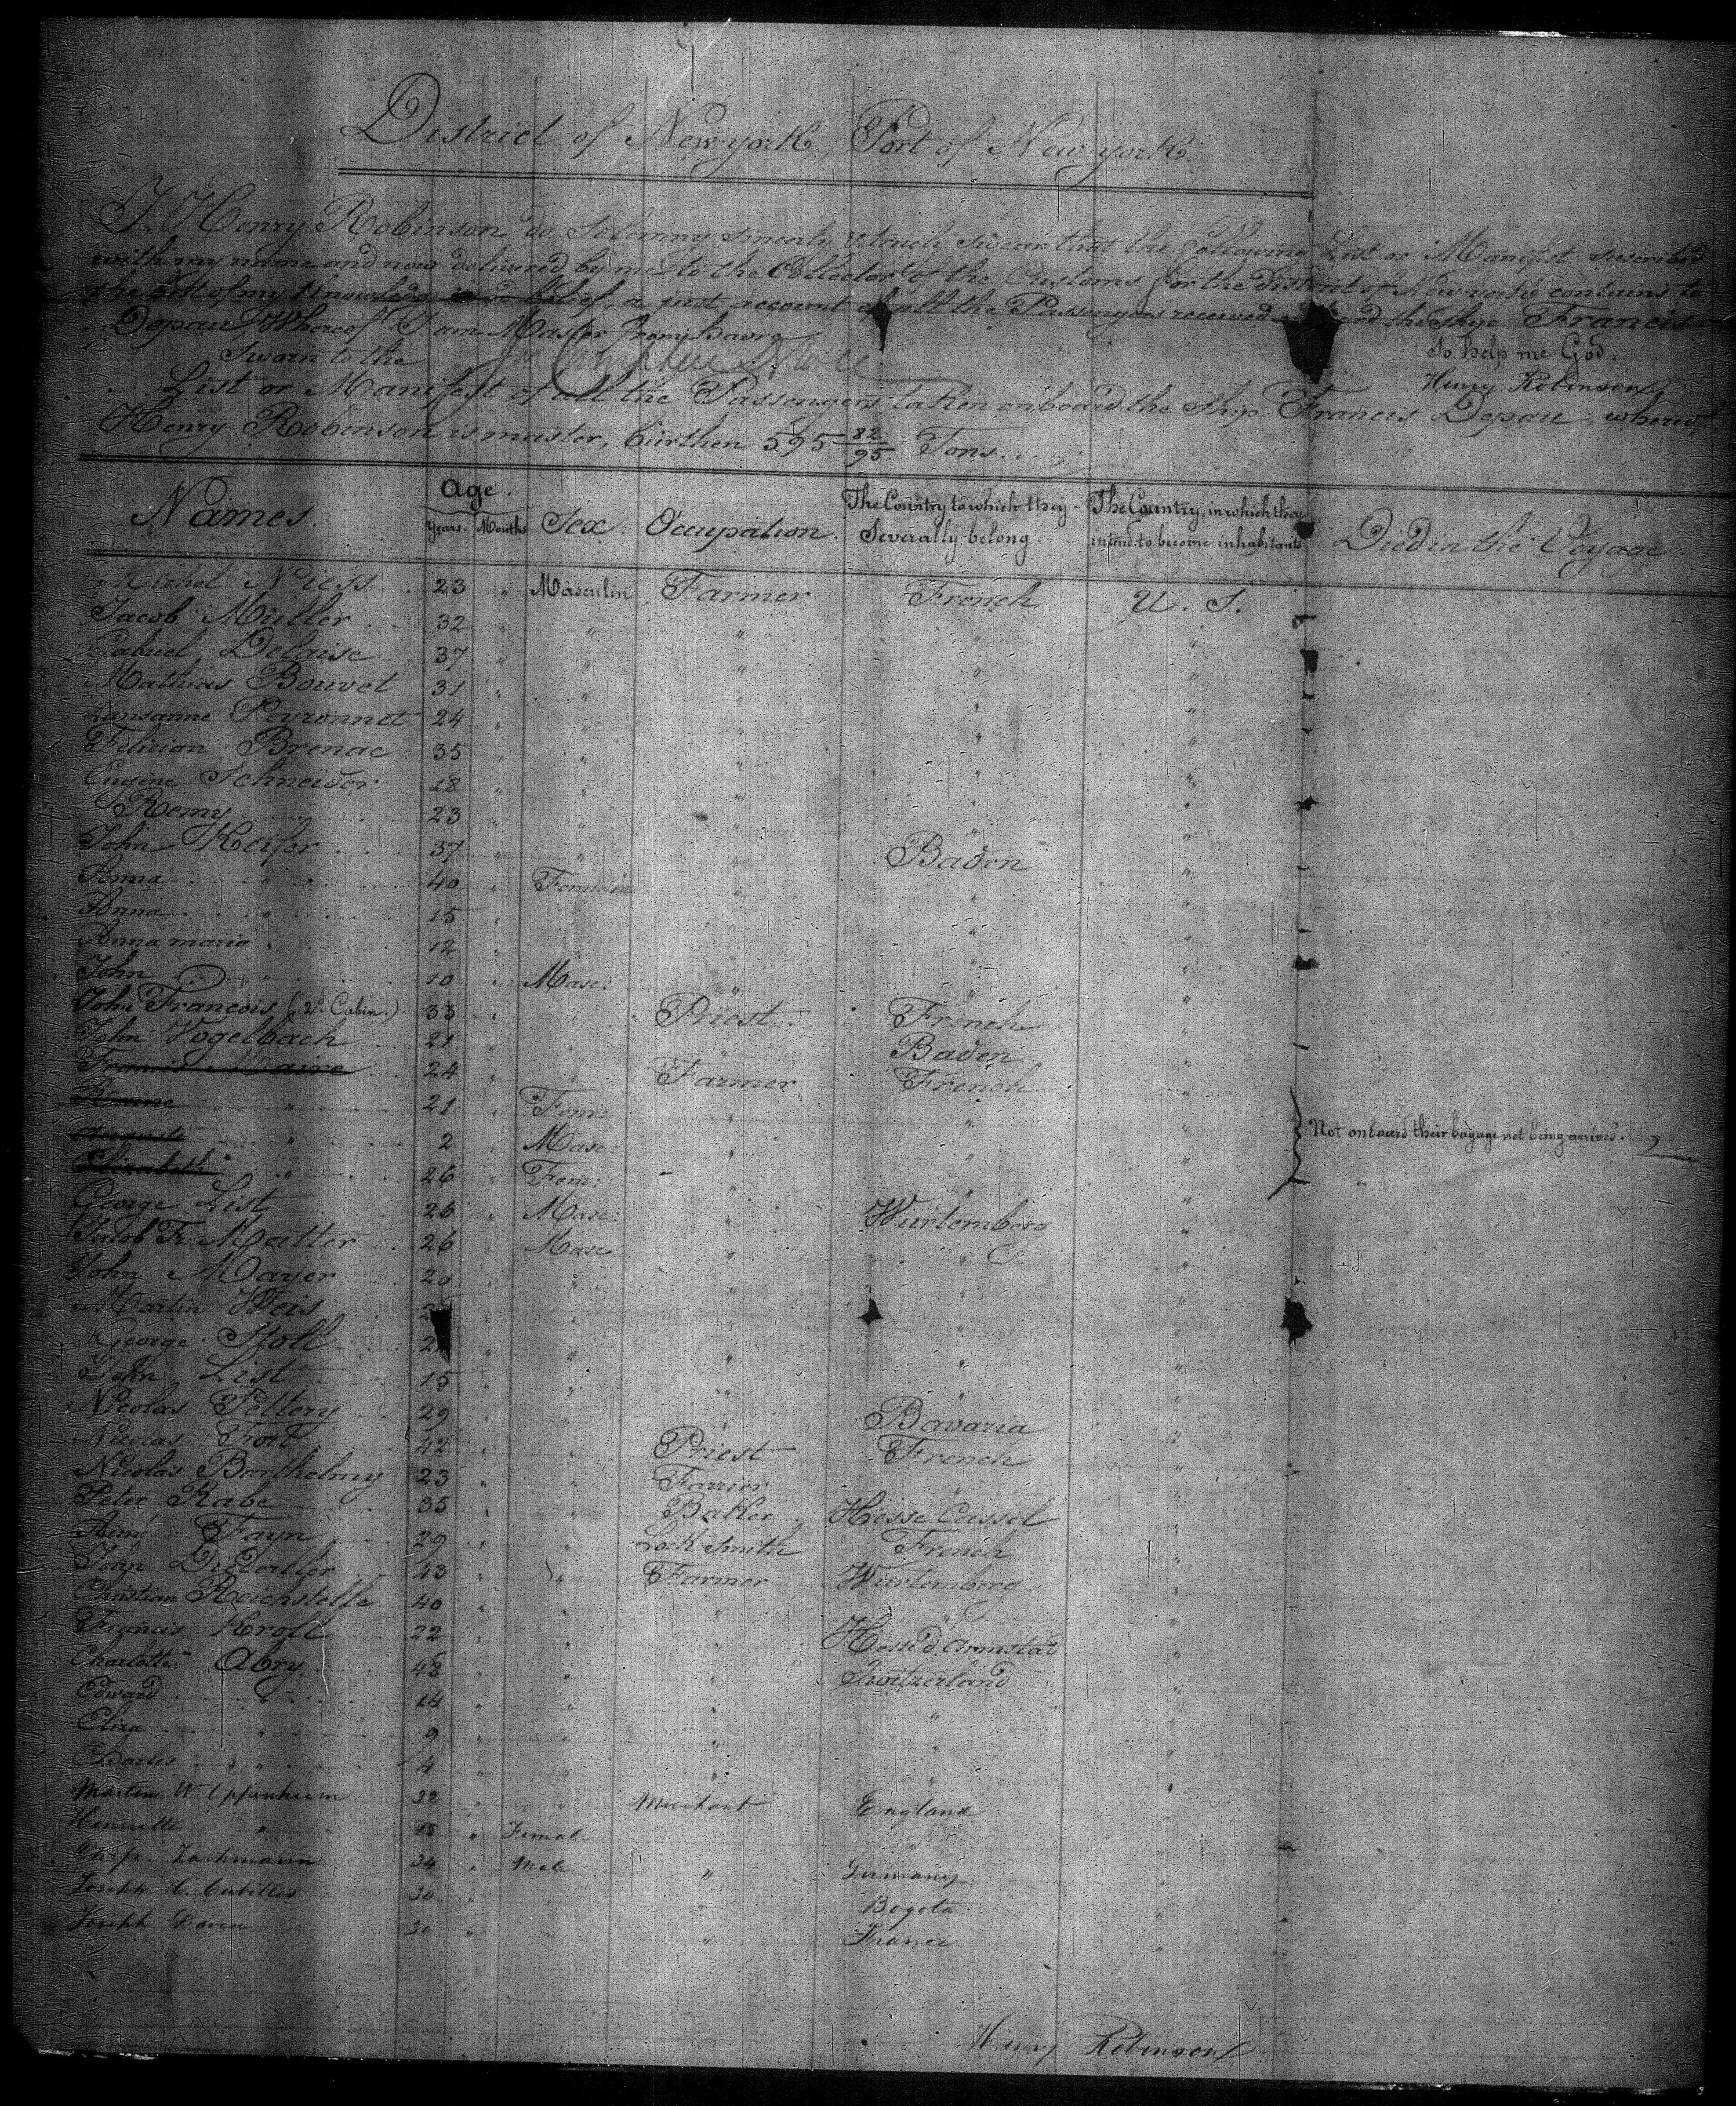 District of New york, Port of New york.
I. Henry Robinson do Solemny sincerly & truely swear that the following List or Manifest suscribed
with my name and now delivered by me to the Collector of the Customs for the District of New york contains to
the best of my Knowledge and belief, a just account of all the Passengers received on board the Ship Francis
Depau Whereof I am Master from havre
Sworn to the
So help me God.
Henry Robinson
List or Manifest of all the Passengers taken on board the Ship Francis Depau, whereof
Henry Robinson is master, burthen 595 82/95 Tons.
Names. Age. Years. Months Sex. Occupation. The Country to which they Severally belong. The Country, in which they intend to become inhabitants Died in the Voyage
Michel Niess 23 " Masculin Farmer French U. S.
Jacob Muller 32 " " " " "
Gabriel Delaise 37 " " " " "
Mathias Bouvet 31 " " " " "
Lausanne Peyronnet 24 " " " " "
Felician Brenac 35 " " " " "
Eugene Schneider 28 " " " " "
Remy 23 " " " " "
John Keifer 37 " " " Baden "
Anna " 40 " Feminin " " "
Anna " 15 " " " "
Anna maria " 12 " " "
John " 10 " Masc: " " "
John Francois (2d Cabin.) 33 " " Priest. French "
John Vogelbach 21 " " " Baden "
Francis Maire 24 " " Farmer French "
" 21 " Fem: " " "
Auguste " 2 " Masc: " " "
Not on board their bagage not being arrived.
Elizabeth " 26 " Fem: " " "
George List 26 " Masc: " Wurtemberg "
Jacob Fr. Matter 26 " Masc " " "
John Mayer 20 " " " "
Martin Weis " " " "
George Stoll " " " " "
John List 15 " " " " "
Nicolas Pettery 29 " " " Bavaria "
Nicolas 42 " " Priest French "
Nicolas Barthelmy 23 " " Farrier " "
Peter Rabe 35 " " Baker Hesse Cassel "
Aimé Fayn 29 " " Lock Smith French "
John 43 " " Farmer Wurtemberg "
Christian Reichstelfe 40 " " " " "
Francis Kroll 22 " " " Hesse d'Armstad "
Charlotte Abry 48 " " " Switzerland "
Edward " 14 " " " " "
Eliza " 9 " " " " "
Charles " 4 " " " " "
Martin W Oppenheim 32 " " Merchant England
Henriette " 18 " Female "
Zachmann 34 " Male " Germany
Joseph C. Cubillos 30 " " Bogota
Joseph 30 " " " France
Henry Robinson